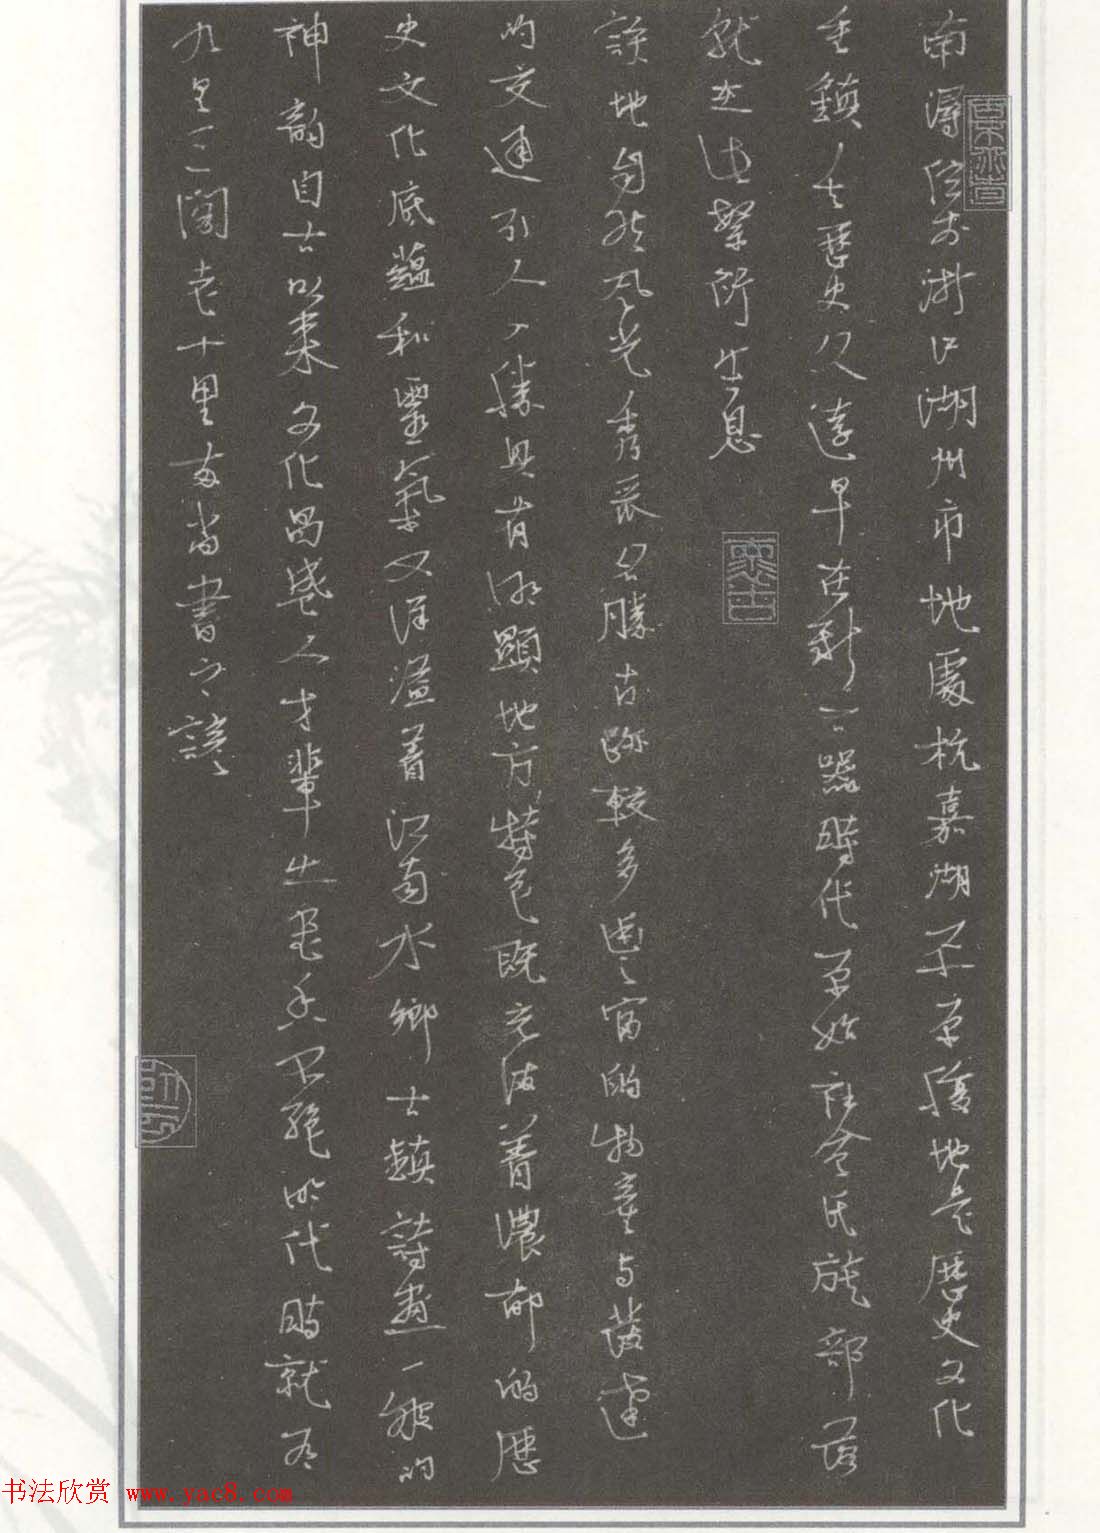 南潯位於浙江湖州市地處杭嘉湖平原腹地是歷史文化
重鎮人文歷史久遠早在新石器時代原始社會氏族部落
就在此繁衍生息
該地自然風光秀麗名勝古跡較多豐富的物產与發達
的交通引人入勝具有明顯地方特色既充滿着濃郁的歷
史文化底蘊和靈氣又洋溢着江南水鄉古鎮詩畫一般的
神韵自古以來文化昌盛人才輩出書香不絕明代時就有
九里三閣老十里兩尚書之諺
书法欣赏 www.yac8.com